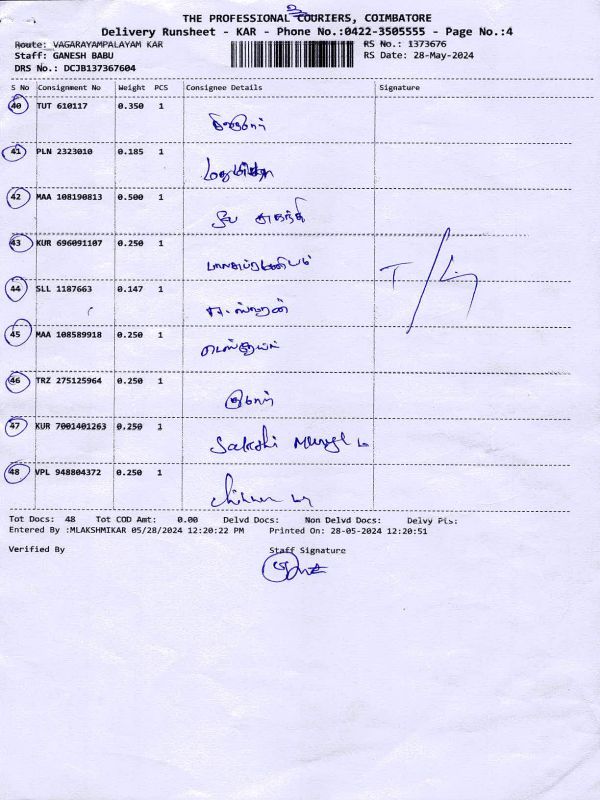 THE PROFESSIONAL COURIERS, COIMBATORE
Delivery Runsheet - KAR - Phone No.:0422-3505555 - Page No.:4
Route: VAGARAYAMPALAYAM KAR RS No.: 1373676
Staff: GANESH BABU RS Date: 28-May-2024
DRS No.: DCJB137367604
S No Consignment No Weight PCS Consignee Details Signature
40 TUT 610117 0.350 1
41 PLN 2323010 0.185 1
42 MAA 108190813 0.500 1
43 KUR 696091107 0.250 1
பாலசுப்ரமணியம்
44 SLL 1187663 0.147 1
45 MAA 108589918 0.250 1
46 TRZ 275125964 0.250 1
குமார்
47 KUR 7001401263 0.250 1
Sakthi
48 VPL 948804372 0.250 1
Tot Docs: 48 Tot COD Amt: 0.00 Delvd Docs: Non Delvd Docs: Delvy Pis:
Entered By :MLAKSHMIKAR 05/28/2024 12:20:22 PM Printed On: 28-05-2024 12:20:51
Verified By Staff Signature